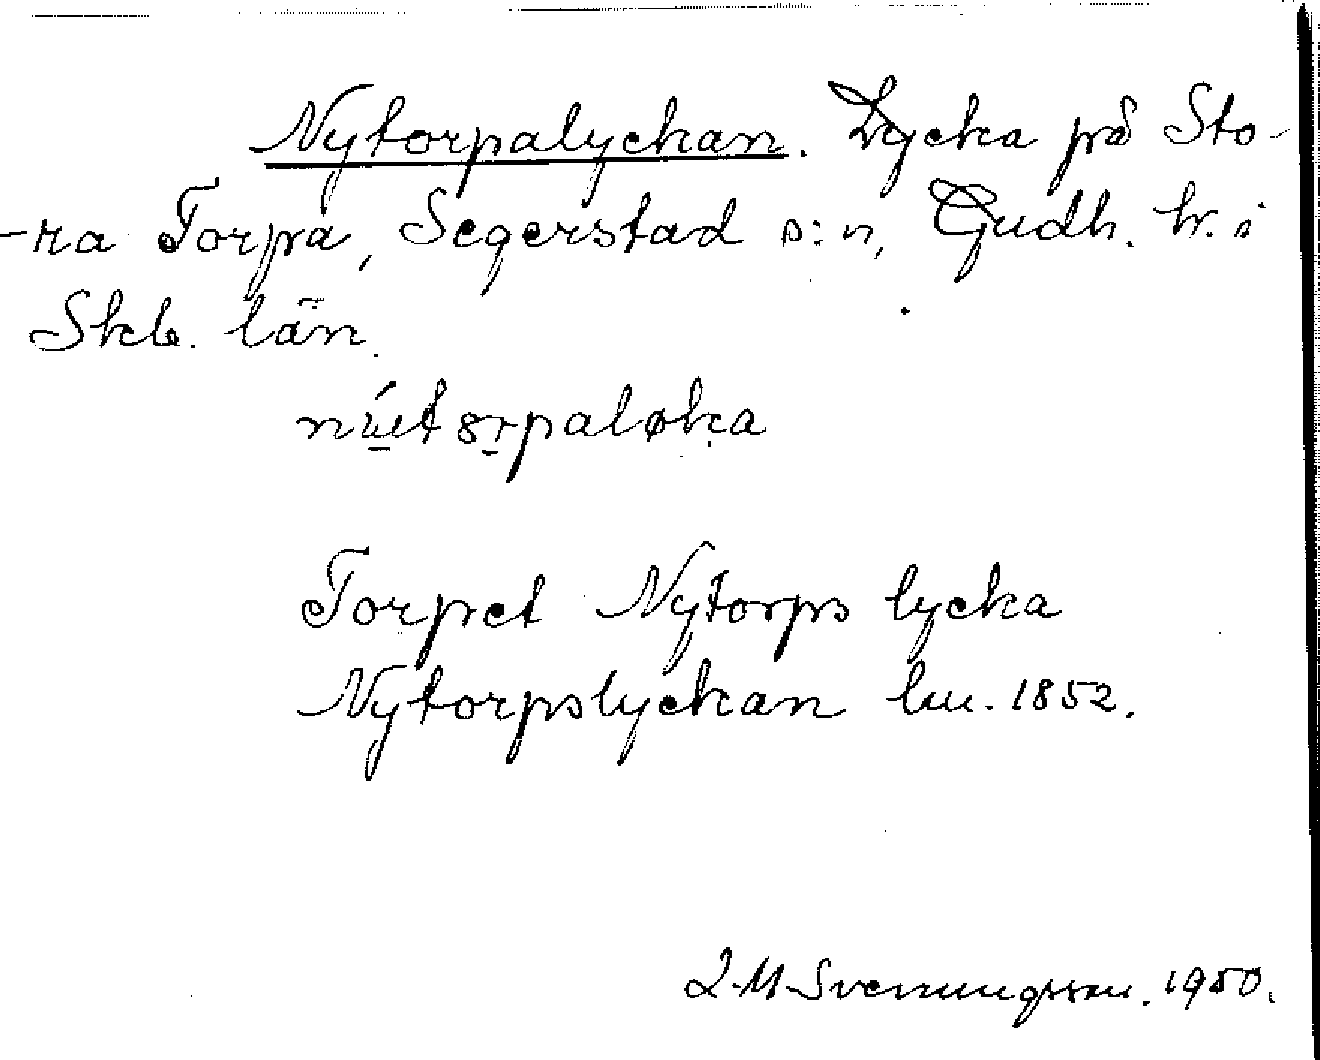 Nytorpalyckan. Lycka på Sto-
-ra Torpa, Segerstad s:n, Gudh. hr. i
Skb. län.
Torpet Nytorps lycka
Nytorpslyckan lm. 1852.
Svenungsson. 1950.